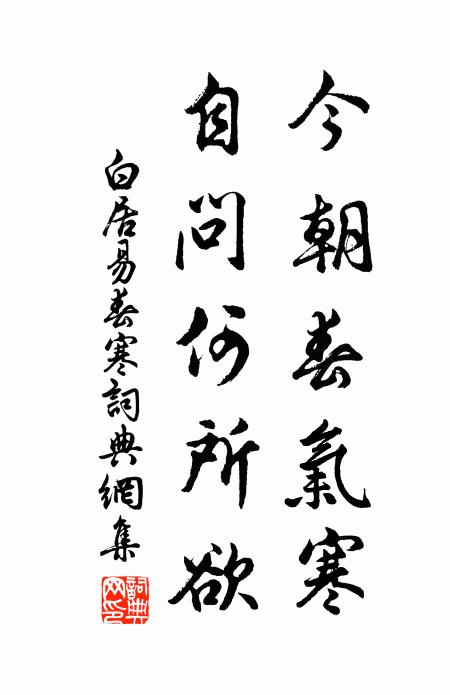 今朝春氣寒
自問何所欲
白居易春寒詞典網集
詞典
网印